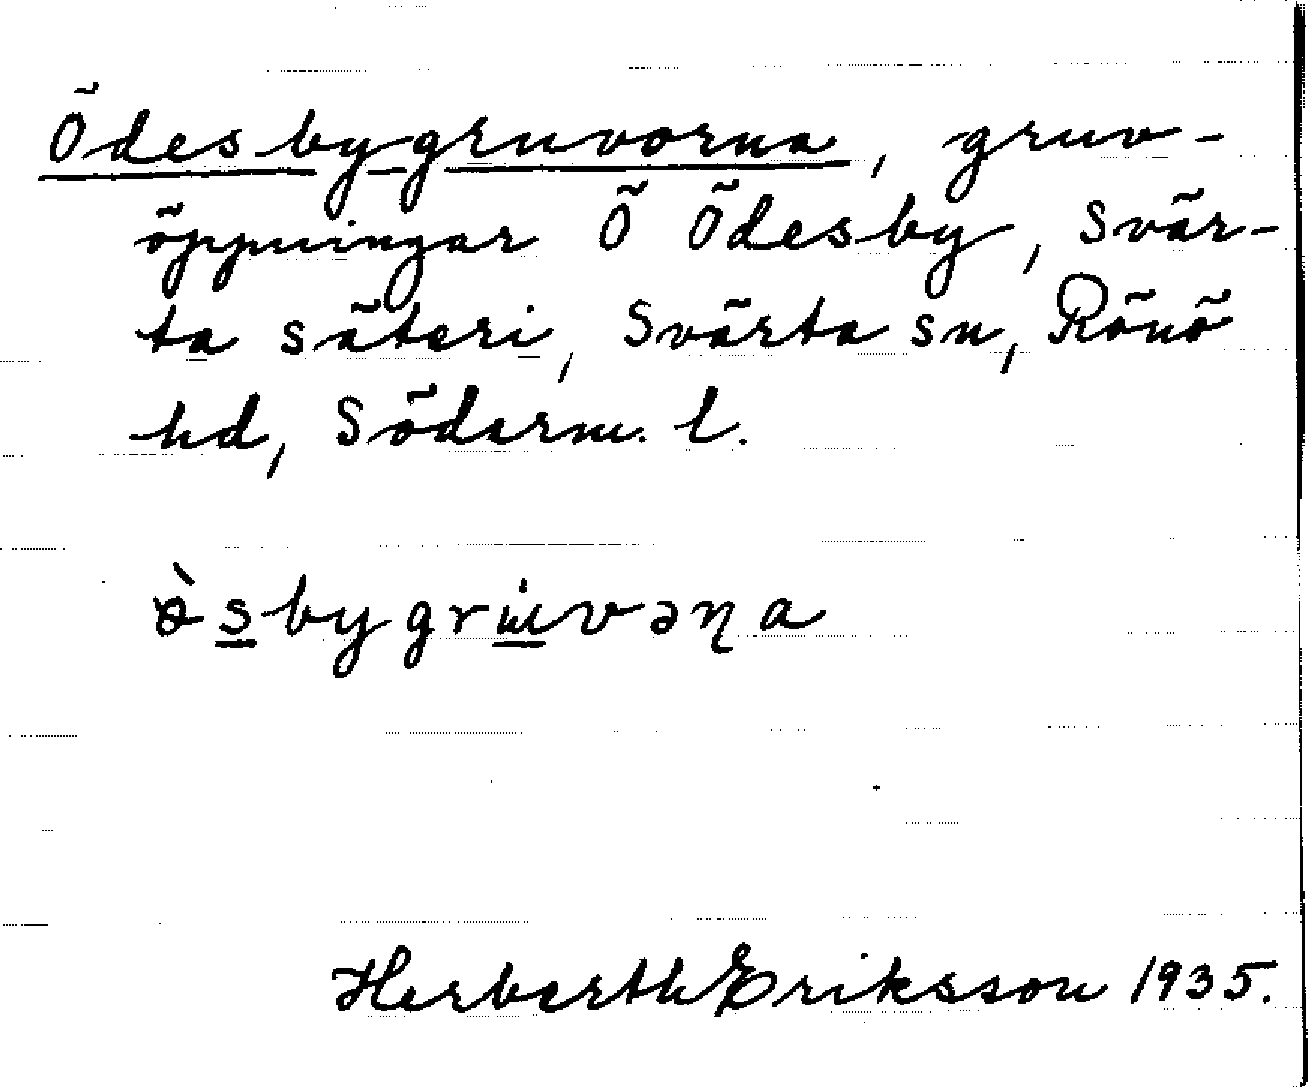 Ödesbygruvorna, gruv-
öppningar Ö Ödesby, Svär-
ta säteri, Svärta sn, Rönö
hd, Söderm. l.
Herberth Eriksson 1935.